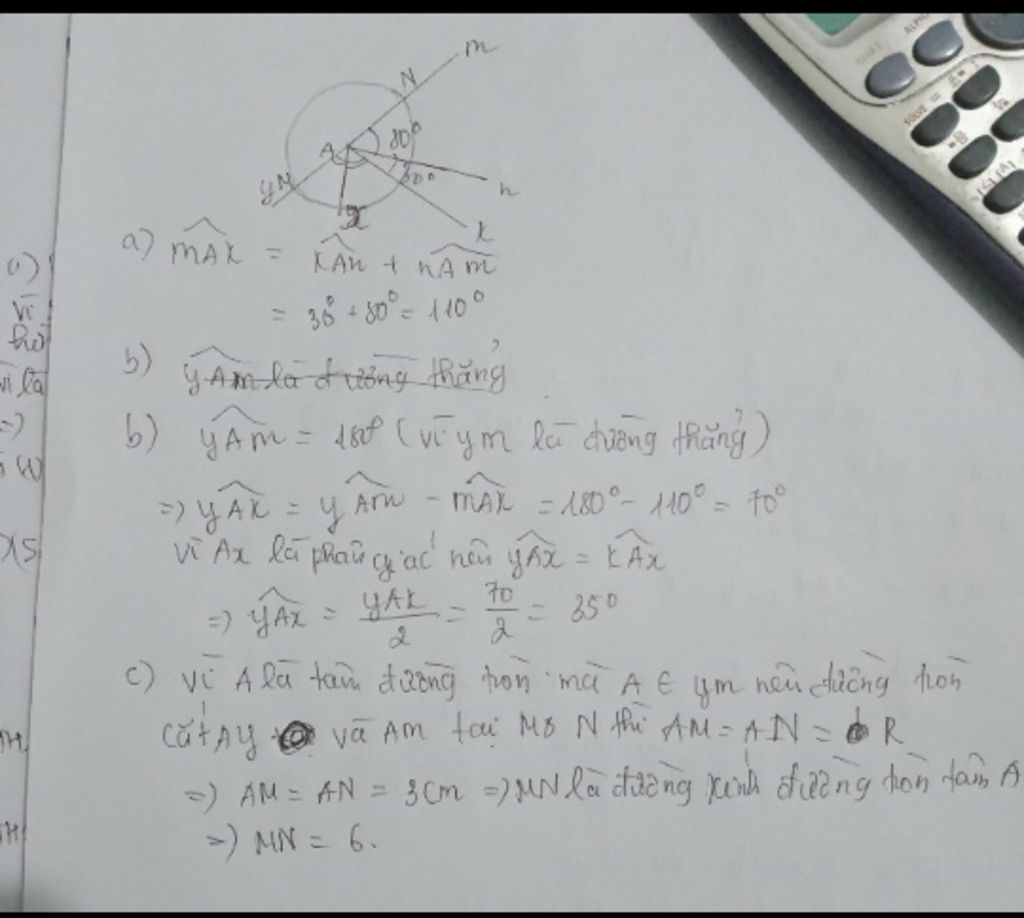 m
N
A
80°
30°
n
y
x
k
a) mAk = kAn + nAm
= 30° + 80° = 110°
b) yAm là đường thẳng
b) yAm = 180° (vì ym là đường thẳng)
=> yAk = yAm - mAk = 180° - 110° = 70°
vì Ax là phân giác nên yAx = kAx
=> yAx = yAk/2 = 70/2 = 35°
c) vì A là tâm đường tròn mà A ∈ ym nên đường tròn
cắt Ay và Am tại M N thì AM = AN = R
=> AM = AN = 3cm => MN là đường kính đường tròn tâm A
=> MN = 6.
SHIFT
ALPHA
SOLVE =
vì